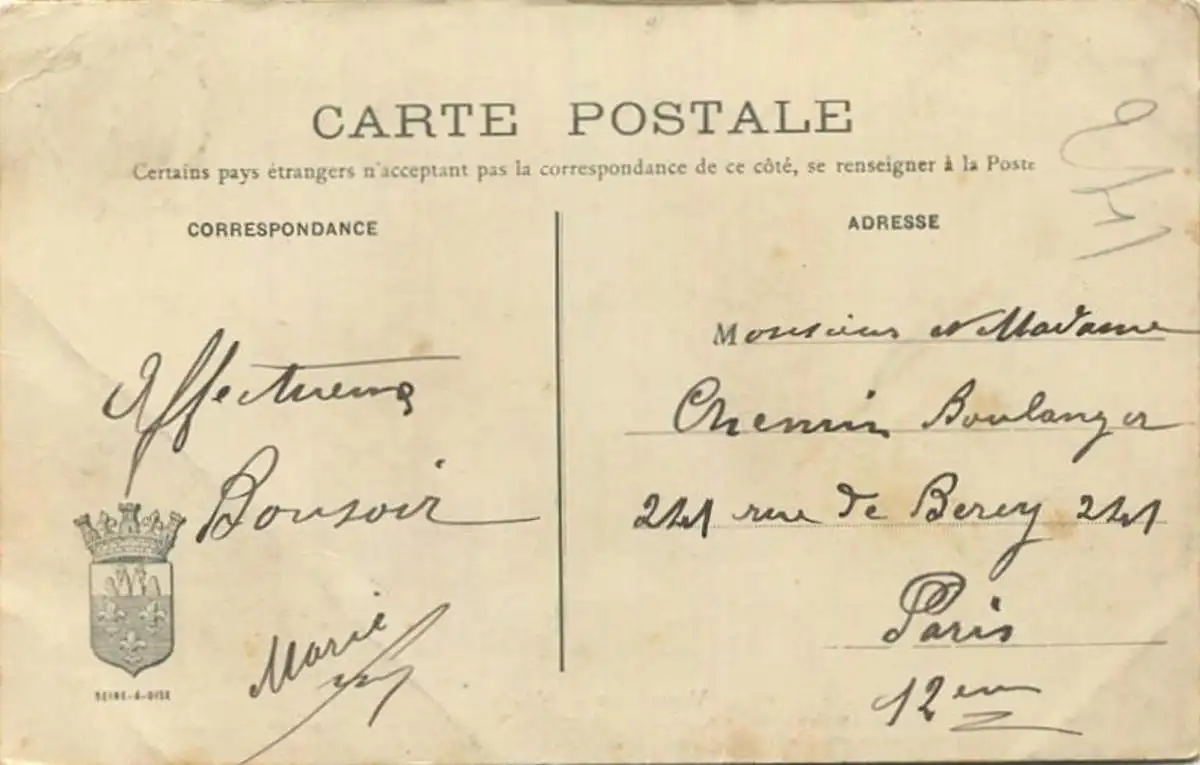 CARTE POSTALE
Certains pays étrangers n'acceptant pas la correspondance de ce côté, se renseigner à la Poste
CORRESPONDANCE
Affectueux
Bonsoir
Marie
SEINE-&-OISE
ADRESSE
Monsieur et Madame
Chemin Boulanger
241 rue de Bercy 241
Paris
12em